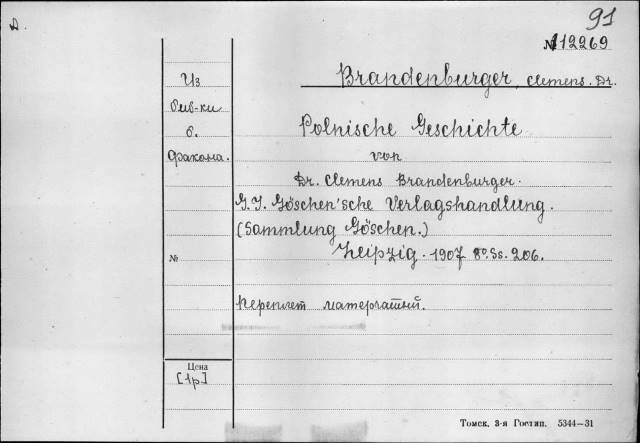 91
Д.
№112269
Brandenburger, Clemens. Dr.
Из
биб-ки
б.
Фахона.
Polnische Geschichte
von
Dr. Clemens Brandenburger.
G. J. Göschen'sche Verlagshandlung.
(Sammlung Göschen.)
Leipzig. 1907 8º. Ss. 206.
№
Переплет матерчатый.
Цена
[1р]
Томск, 3-я Гостип. 5344—31